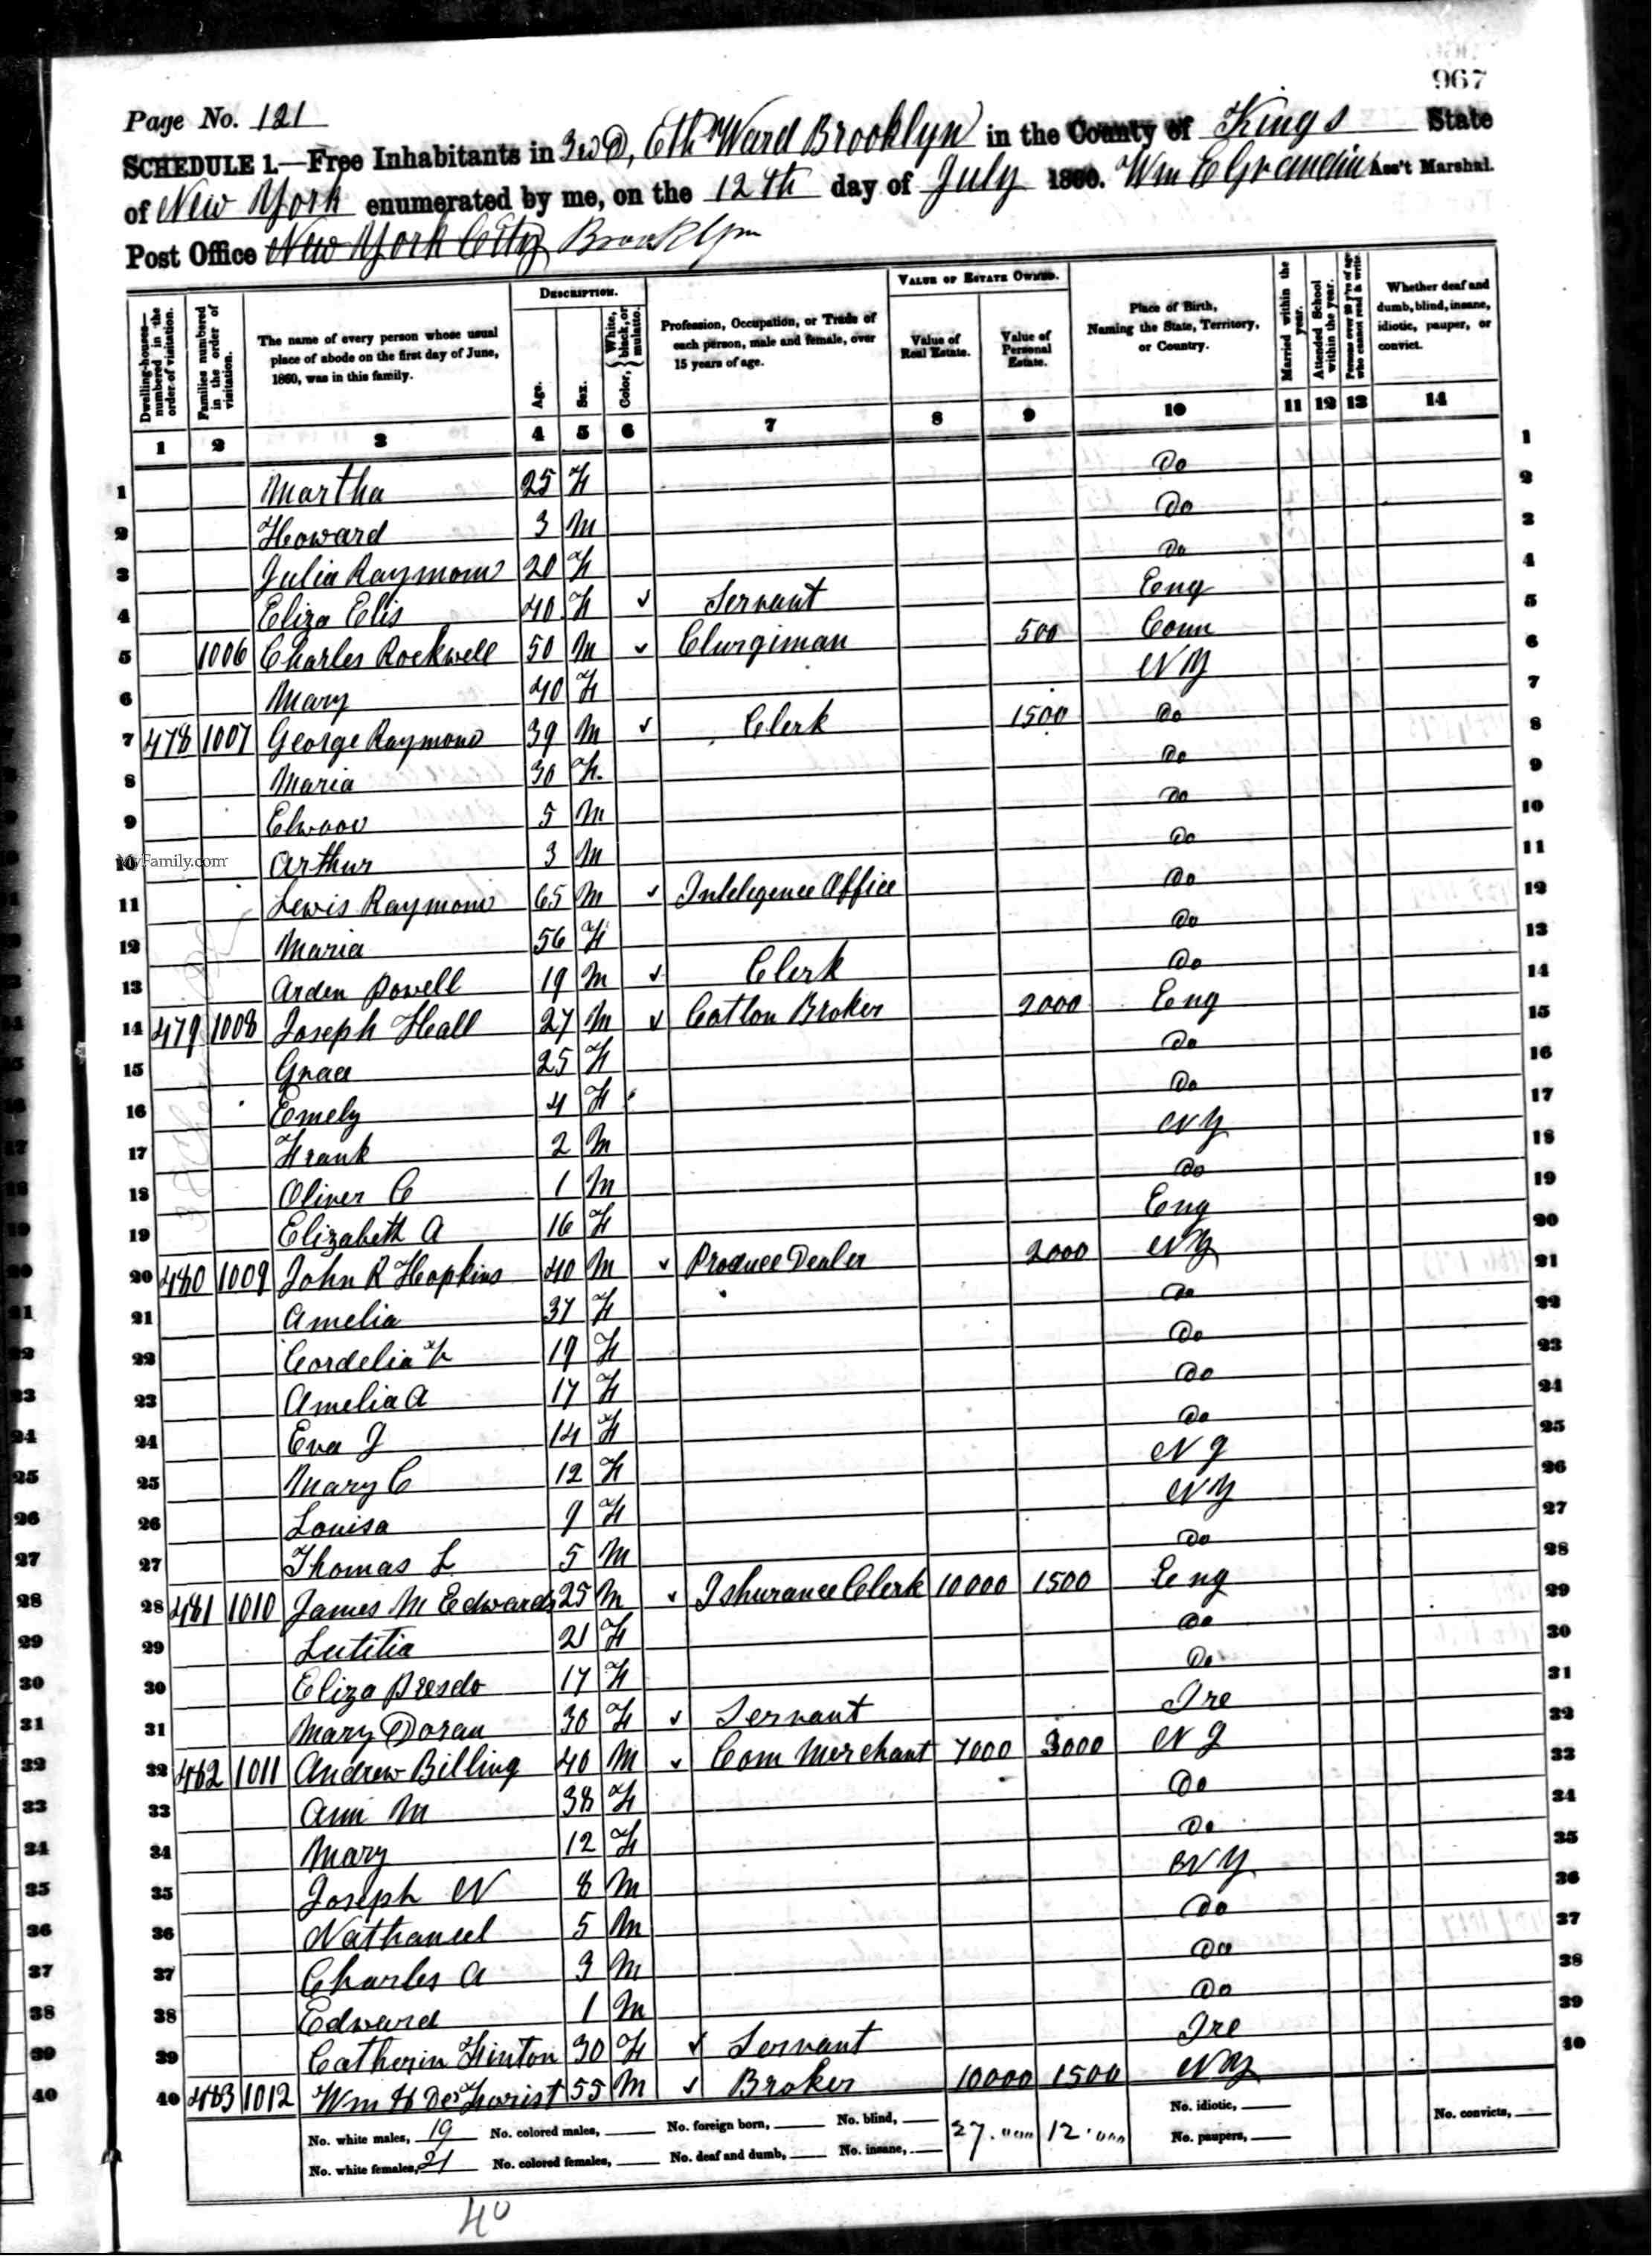 967
Page No. 121
SCHEDULE 1.—Free Inhabitants in 3wd, 6th Ward Brooklyn in the County of Kings State
of New York enumerated by me, on the 12th day of July 1860. Wm E Grandin Ass't Marshal.
Post Office New York City Brooklyn
Dwelling-houses—numbered in the order of visitation.
Families numbered in the order of visitation.
The name of every person whose usual place of abode on the first day of June, 1860, was in this family.
DESCRIPTION.
Age.
Sex.
Color, { White, black, or mulatto.
Profession, Occupation, or Trade of each person, male and female, over 15 years of age.
VALUE OF ESTATE OWNED.
Value of Real Estate.
Value of Personal Estate.
Place of Birth, Naming the State, Territory, or Country.
Married within the year.
Attended School within the year.
Persons over 20 y'rs of age who cannot read & write.
Whether deaf and dumb, blind, insane, idiotic, pauper, or convict.
1 2 3 4 5 6 7 8 9 10 11 12 13 14
1 Martha 25 F Do 1
2 Howard 3 M Do 2
3 Julia Raymond 20 F Do 3
4 Eliza Elis 40 F ✓ Servant Eng 4
5 1006 Charles Rockwell 50 M ✓ Clurgiman 500 Conn 5
6 Mary 40 F NY 6
7 478 1007 George Raymond 39 M ✓ Clerk 1500 Do 7
8 Maria 30 F Do 8
9 Elwood 5 M Do 9
10 Arthur 3 M Do 10
MyFamily.com
11 Lewis Raymond 65 M ✓ Intelegence Office Do 11
12 Maria 56 F Do 12
13 Arden Powell 19 M ✓ Clerk Do 13
14 479 1008 Joseph Hall 27 M ✓ Cotton Broker 2000 Eng 14
15 Grace 25 F Do 15
16 Emely 4 F Do 16
17 Frank 2 M NY 17
18 Oliver C 1 M Do 18
19 Elizabeth A 16 F Eng 19
20 480 1009 John R Hopkins 40 M ✓ Produce Dealer 2000 NY 20
21 Amelia 37 F Do 21
22 Cordelia F 19 F Do 22
23 Amelia A 17 F Do 23
24 Eva J 14 F Do 24
25 Mary C 12 F NJ 25
26 Louisa 9 F NY 26
27 Thomas L 5 M Do 27
28 481 1010 James M Edwards 25 M ✓ Ishurance Clerk 10000 1500 Eng 28
29 Lutitia 21 F Do 29
30 Eliza 17 F Do 30
31 Mary Doran 30 F ✓ Servant Ire 31
32 482 1011 Andrew Billing 40 M ✓ Com Merchant 7000 3000 NJ 32
33 Ann M 38 F Do 33
34 Mary 12 F Do 34
35 Joseph N 8 M NY 35
36 Nathaneel 5 M Do 36
37 Charles A 3 M Do 37
38 Edward 1 M Do 38
39 Catherin Hinton 30 F ✓ Servant Ire 39
40 483 1012 Wm H DeForist 55 M ✓ Broker 10000 1500 NY 40
No. white males, 19 No. colored males, No. foreign born, No. blind, 27.000 12.000 No. idiotic, No. convicts,
No. white females, 21 No. colored females, No. deaf and dumb, No. insane, No. paupers,
40